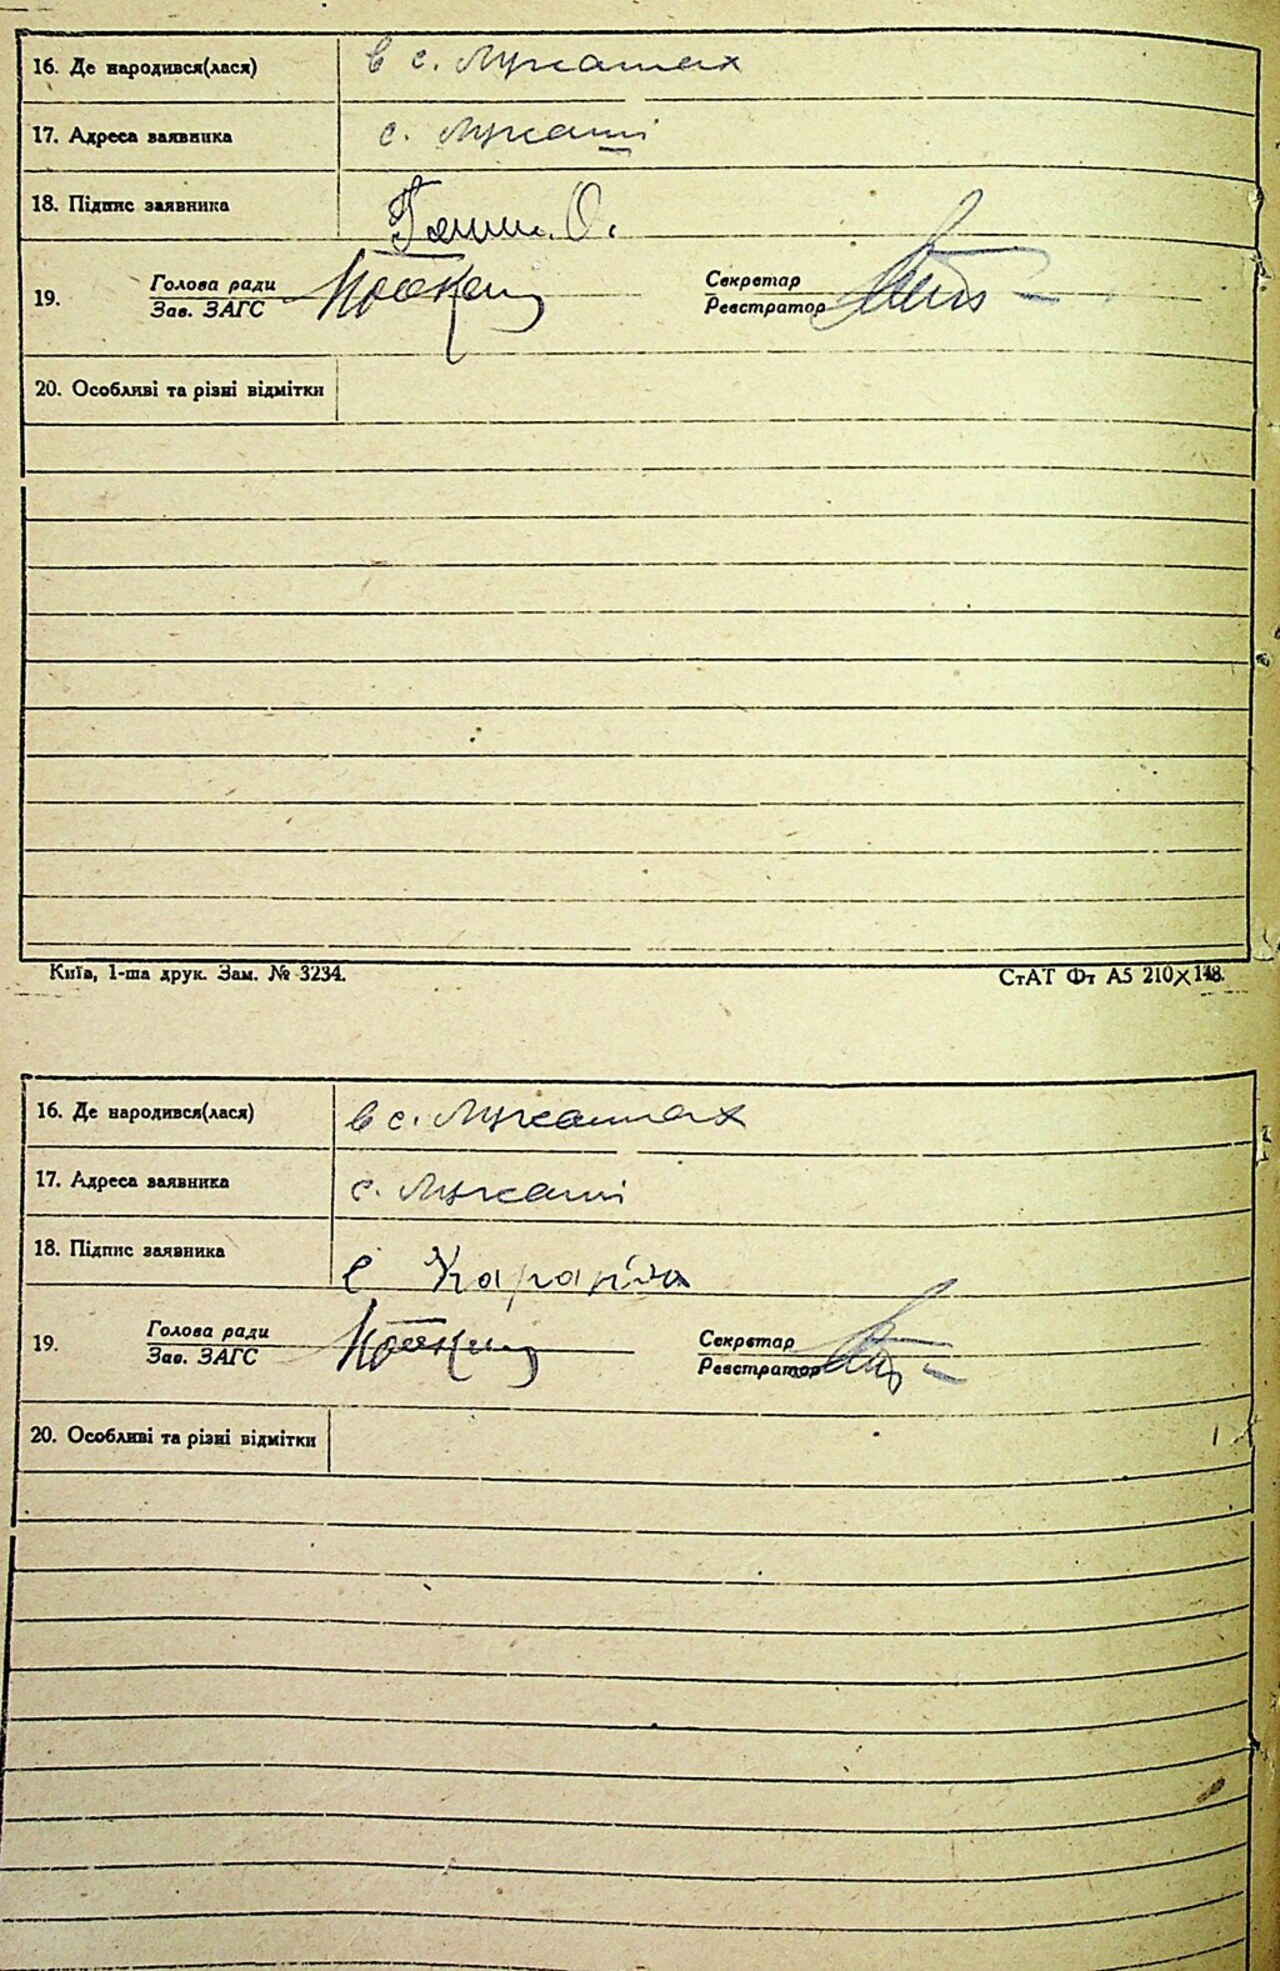 16. Де народився(лася) в с. Лукашах
17. Адреса заявника с. Лукаші
18. Підпис заявника
19. Голова ради Секретар
Зав. ЗАГС Реєстратор
20. Особливі та різні відмітки
Київ, 1-ша друк. Зам. № 3234. СтАТ Фт А5 210×148.
16. Де народився(лася) в с. Лукашах
17. Адреса заявника с. Лукаші
18. Підпис заявника
19. Голова ради Секретар
Зав. ЗАГС Реєстратор
20. Особливі та різні відмітки